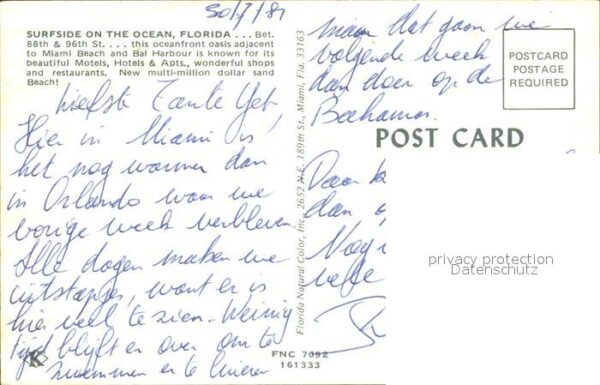 30/7/81
SURFSIDE ON THE OCEAN, FLORIDA . . . Bet.
88th & 96th St. . . . this oceanfront oasis adjacent
to Miami Beach and Bal Harbour is known for its
beautiful Motels, Hotels & Apts., wonderful shops
and restaurants. New multi-million dollar sand
Beach!
Liefste Tante Yet,
Hier in Miami is
het nog warmer dan
in Orlando waar we
vorige week verbleven.
Alle dagen maken we
uitstapjes, want er is
hier veel te zien. Weinig
tijd blijft er over om te
zwemmen en te luieren
Florida Natural Color, Inc., 2652 N.E. 189th St., Miami, Fla. 33163
FNC 7092
161333
maar dat gaan we
volgende week
dan doen op de
Bahamas.
POSTCARD
POSTAGE
REQUIRED
POST CARD
Daar
dan
Nog
vele
privacy protection
Datenschutz